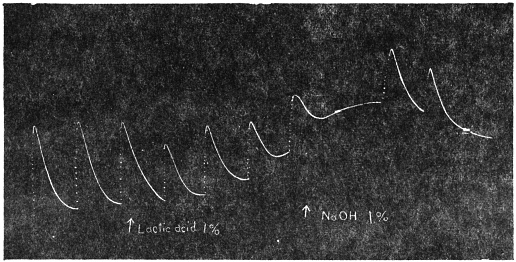 ↑ Lactic acid 1%
↑ NaOH 1%